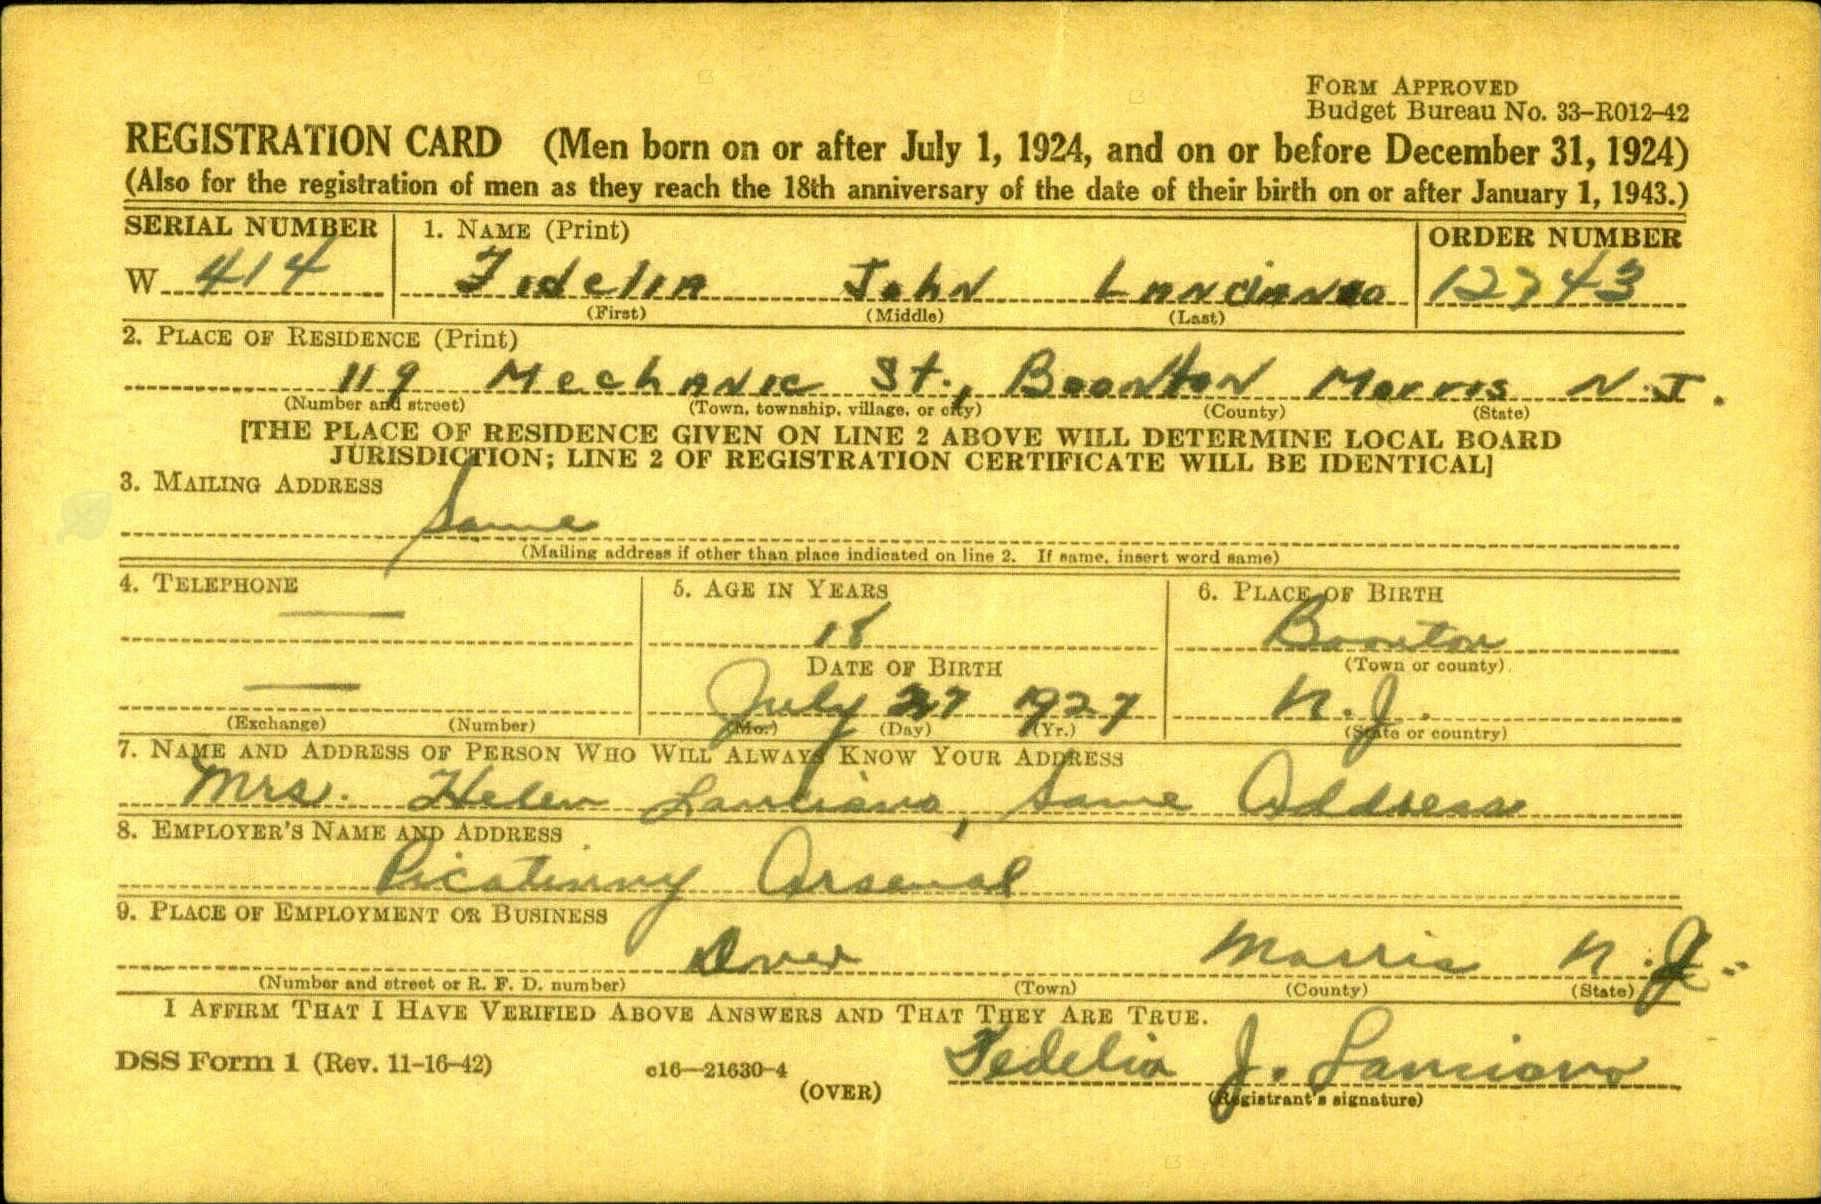 FORM APPROVED
Budget Bureau No. 33–R012–42
REGISTRATION CARD (Men born on or after July 1, 1924, and on or before December 31, 1924)
(Also for the registration of men as they reach the 18th anniversary of the date of their birth on or after January 1, 1943.)
SERIAL NUMBER 1. NAME (Print) ORDER NUMBER
W 414 Fidelia John Lanciano 12743
(First) (Middle) (Last)
2. PLACE OF RESIDENCE (Print)
119 Mechanic St., Boonton Morris N.J.
(Number and street) (Town, township, village, or city) (County) (State)
[THE PLACE OF RESIDENCE GIVEN ON LINE 2 ABOVE WILL DETERMINE LOCAL BOARD
JURISDICTION; LINE 2 OF REGISTRATION CERTIFICATE WILL BE IDENTICAL]
3. MAILING ADDRESS
Same
(Mailing address if other than place indicated on line 2. If same, insert word same)
4. TELEPHONE 5. AGE IN YEARS 6. PLACE OF BIRTH
— 18 Boonton
DATE OF BIRTH (Town or county)
— July 27 1927 N.J.
(Exchange) (Number) (Mo.) (Day) (Yr.) (State or country)
7. NAME AND ADDRESS OF PERSON WHO WILL ALWAYS KNOW YOUR ADDRESS
Mrs. Helen Lanciano, Same Address
8. EMPLOYER'S NAME AND ADDRESS
Picatinny Arsenal
9. PLACE OF EMPLOYMENT OR BUSINESS
Dover Morris N.J.
(Number and street or R. F. D. number) (Town) (County) (State)
I AFFIRM THAT I HAVE VERIFIED ABOVE ANSWERS AND THAT THEY ARE TRUE.
DSS Form 1 (Rev. 11-16-42) c16—21630-4 Fedelia J. Lanciano
(OVER) (Registrant's signature)